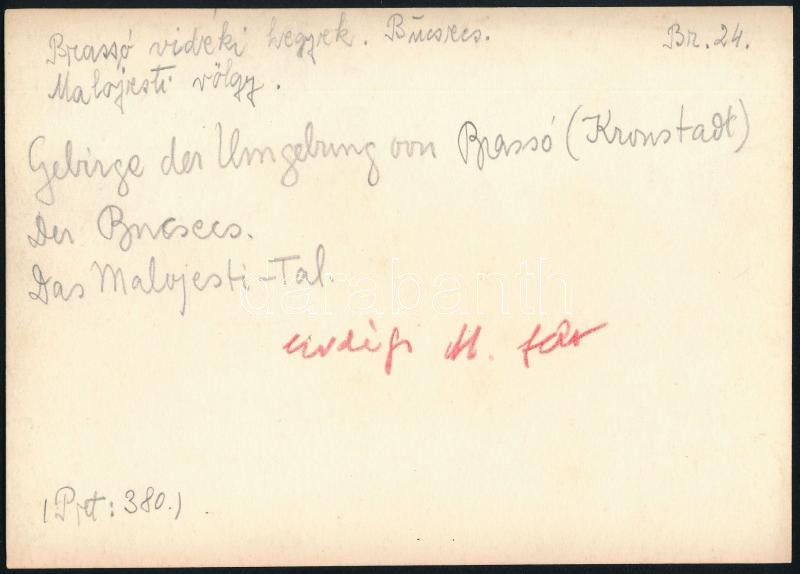 Brassó vidéki hegyek. Bucsecs. Br. 24.
Malojesti völgy.
Gebirge der Umgebung von Brassó (Kronstadt)
Der Bucsecs.
Das Malojesti-Tal.
darabanth
Erdélyi M. felv
(Pjt: 380.)